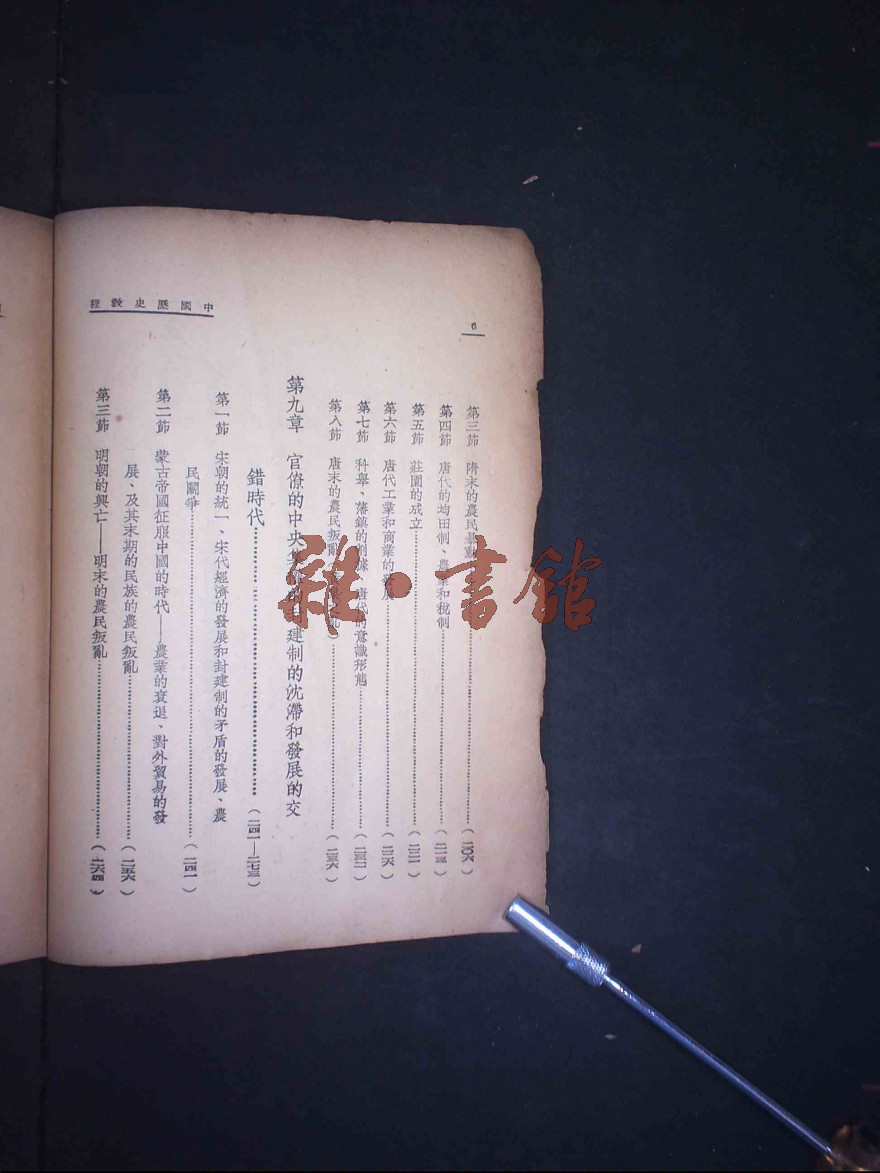 中國歷史教程
6
第三節 隋末的農民暴動……(二〇六)
第四節 唐代的均田制、農業和稅制……(二一三)
第五節 莊園的成立……(二二一)
第六節 唐代工業和商業的發展……(二二六)
第七節 科舉、藩鎮的割據、唐代的意識形態……(二三二)
第八節 唐末的農民叛亂……(二三六)
第九章 官僚的中央 建制的沈滯和發展的交
錯時代……(二四一—二七三)
第一節 宋朝的統一、宋代經濟的發展和封建制的矛盾的發展、農
民鬭爭……(二四一)
第二節 蒙古帝國征服中國的時代——農業的衰退、對外貿易的發
展、及其末期的民族的農民叛亂……(二五六)
第三節 明朝的興亡——明末的農民叛亂……(二六四)
雜·書館